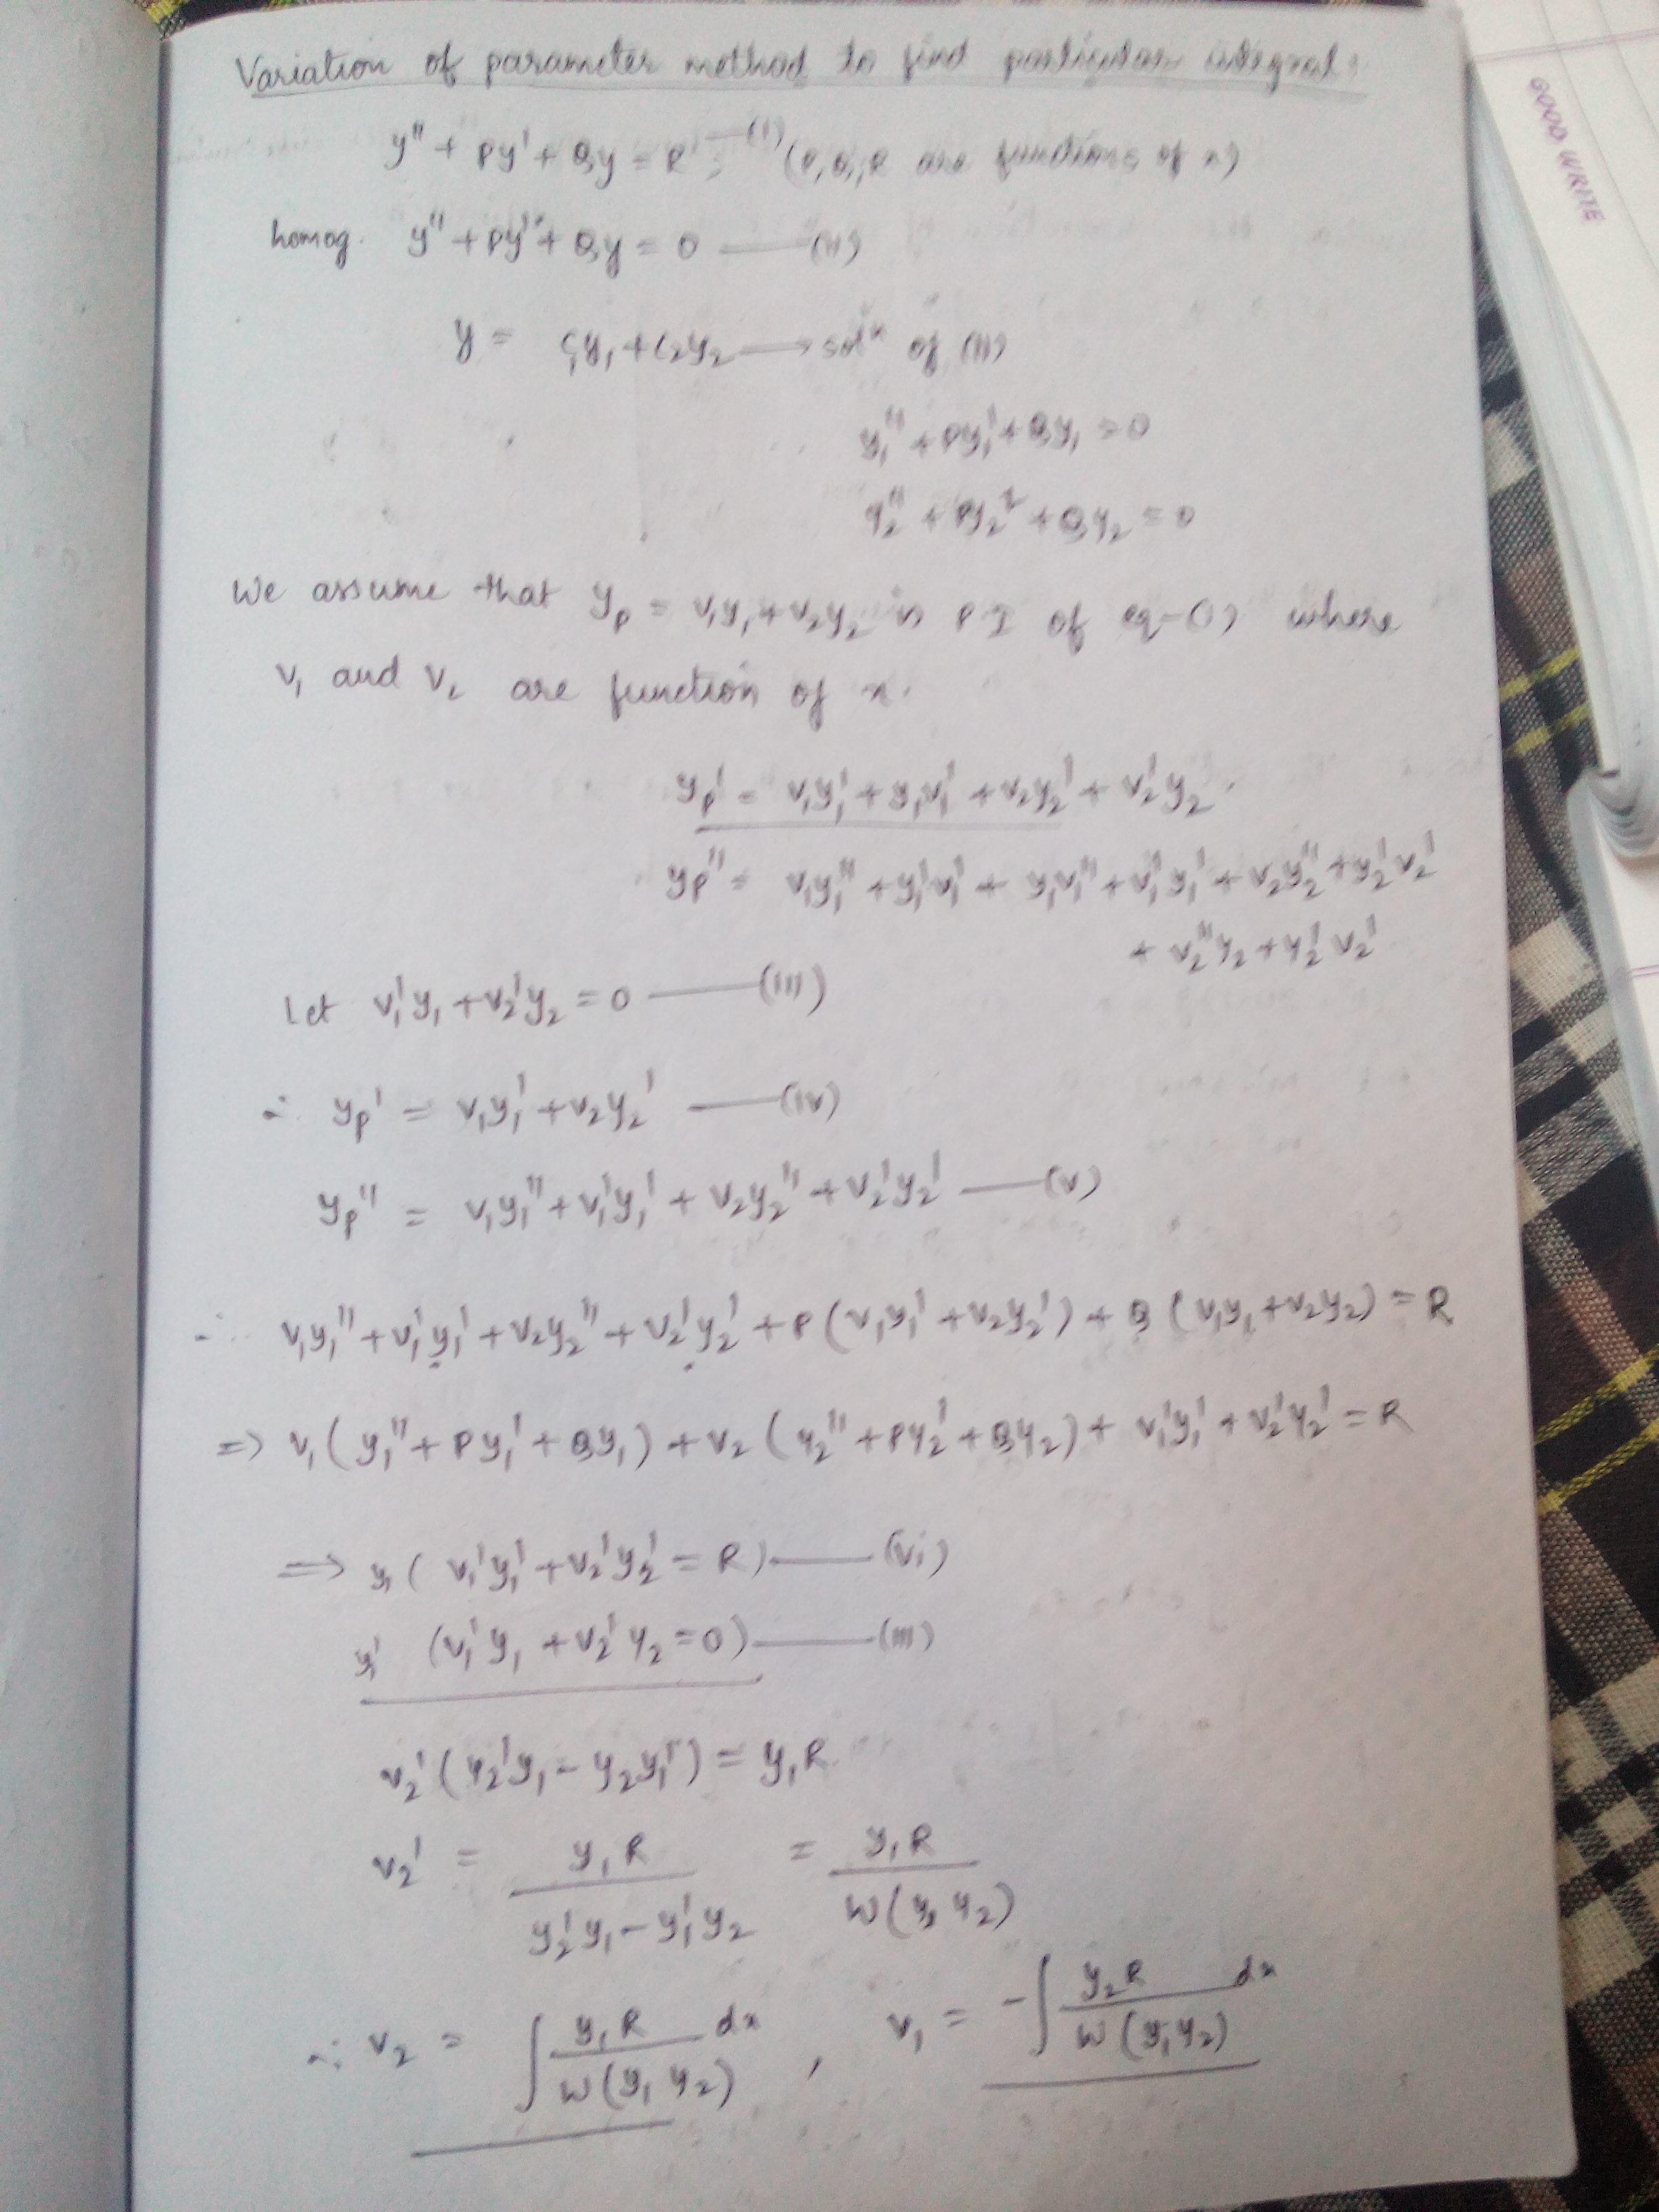 Variation of parameter method to find particular integral:
y'' + Py' + Qy = R ; —(i) (P, Q, R are functions of x)
homog. y'' + Py' + Qy = 0 ——(ii)
y = c₁y₁ + c₂y₂ ⟶ solⁿ of (ii)
y₁'' + Py₁' + Qy₁ = 0
y₂'' + Py₂' + Qy₂ = 0
We assume that yₚ = v₁y₁ + v₂y₂ is P I of eq-(i) where
v₁ and v₂ are function of x.
yₚ' = v₁y₁' + y₁v₁' + v₂y₂' + v₂'y₂.
yₚ'' = v₁y₁'' + y₁'v₁' + y₁v₁'' + v₁'y₁' + v₂y₂'' + y₂'v₂'
+ v₂''y₂ + y₂'v₂'
Let v₁'y₁ + v₂'y₂ = 0 ——(iii)
∴ yₚ' = v₁y₁' + v₂y₂' ——(iv)
yₚ'' = v₁y₁'' + v₁'y₁' + v₂y₂'' + v₂'y₂' ——(v)
∴ v₁y₁'' + v₁'y₁' + v₂y₂'' + v₂'y₂' + P(v₁y₁' + v₂y₂') + Q(v₁y₁ + v₂y₂) = R
=> v₁(y₁'' + Py₁' + Qy₁) + v₂(y₂'' + Py₂' + Qy₂) + v₁'y₁' + v₂'y₂' = R
=> y₁(v₁'y₁' + v₂'y₂' = R) ——(vi)
y₁' (v₁'y₁ + v₂'y₂ = 0) ——(iii)
v₂'(y₂'y₁ - y₂y₁') = y₁R
v₂' = y₁R / (y₂'y₁ - y₁'y₂) = y₁R / W(y₁ y₂)
∴ v₂ = ∫ y₁R / W(y₁ y₂) dx , v₁ = -∫ y₂R / W(y₁ y₂) dx
GOOD WRITE